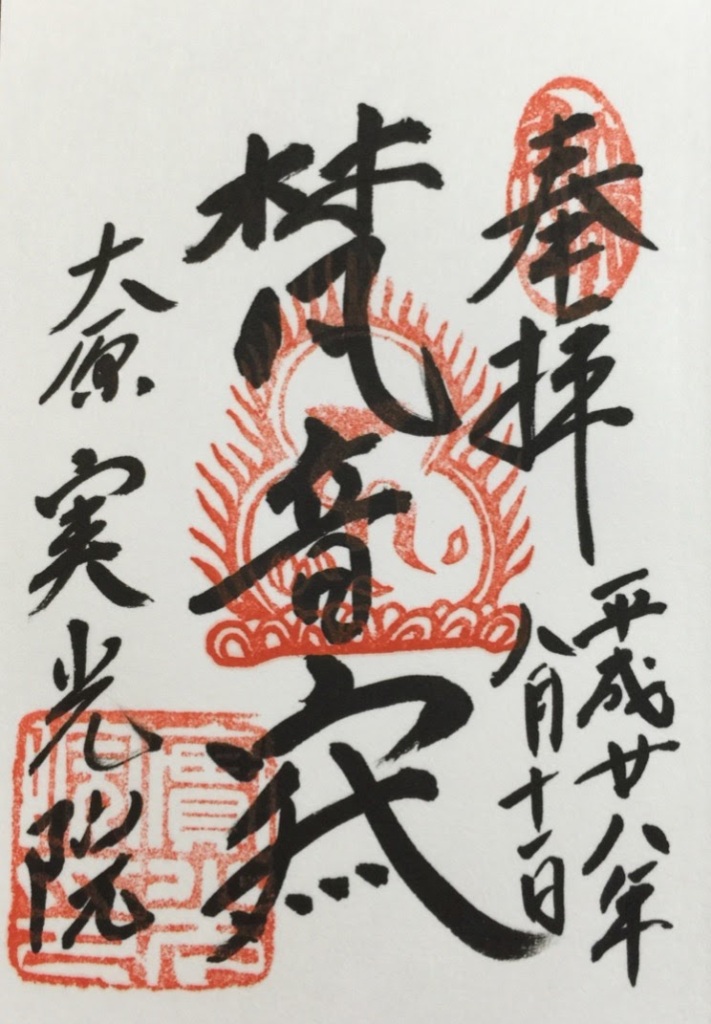 奉拝
平成廿八年
八月十一日
梵音殿
大原 実光院